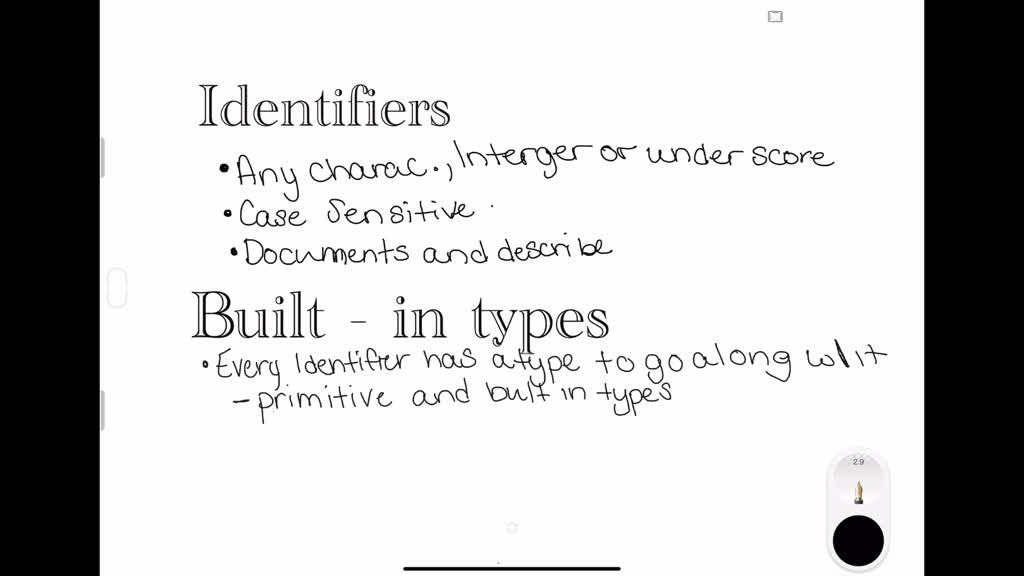 Identifiers
• Any charac., Interger or under score
• Case Sensitive
• Documents and describe
Built - in types
• Every Identifier has a type to go along w/ it
- primitive and built in types
2.9